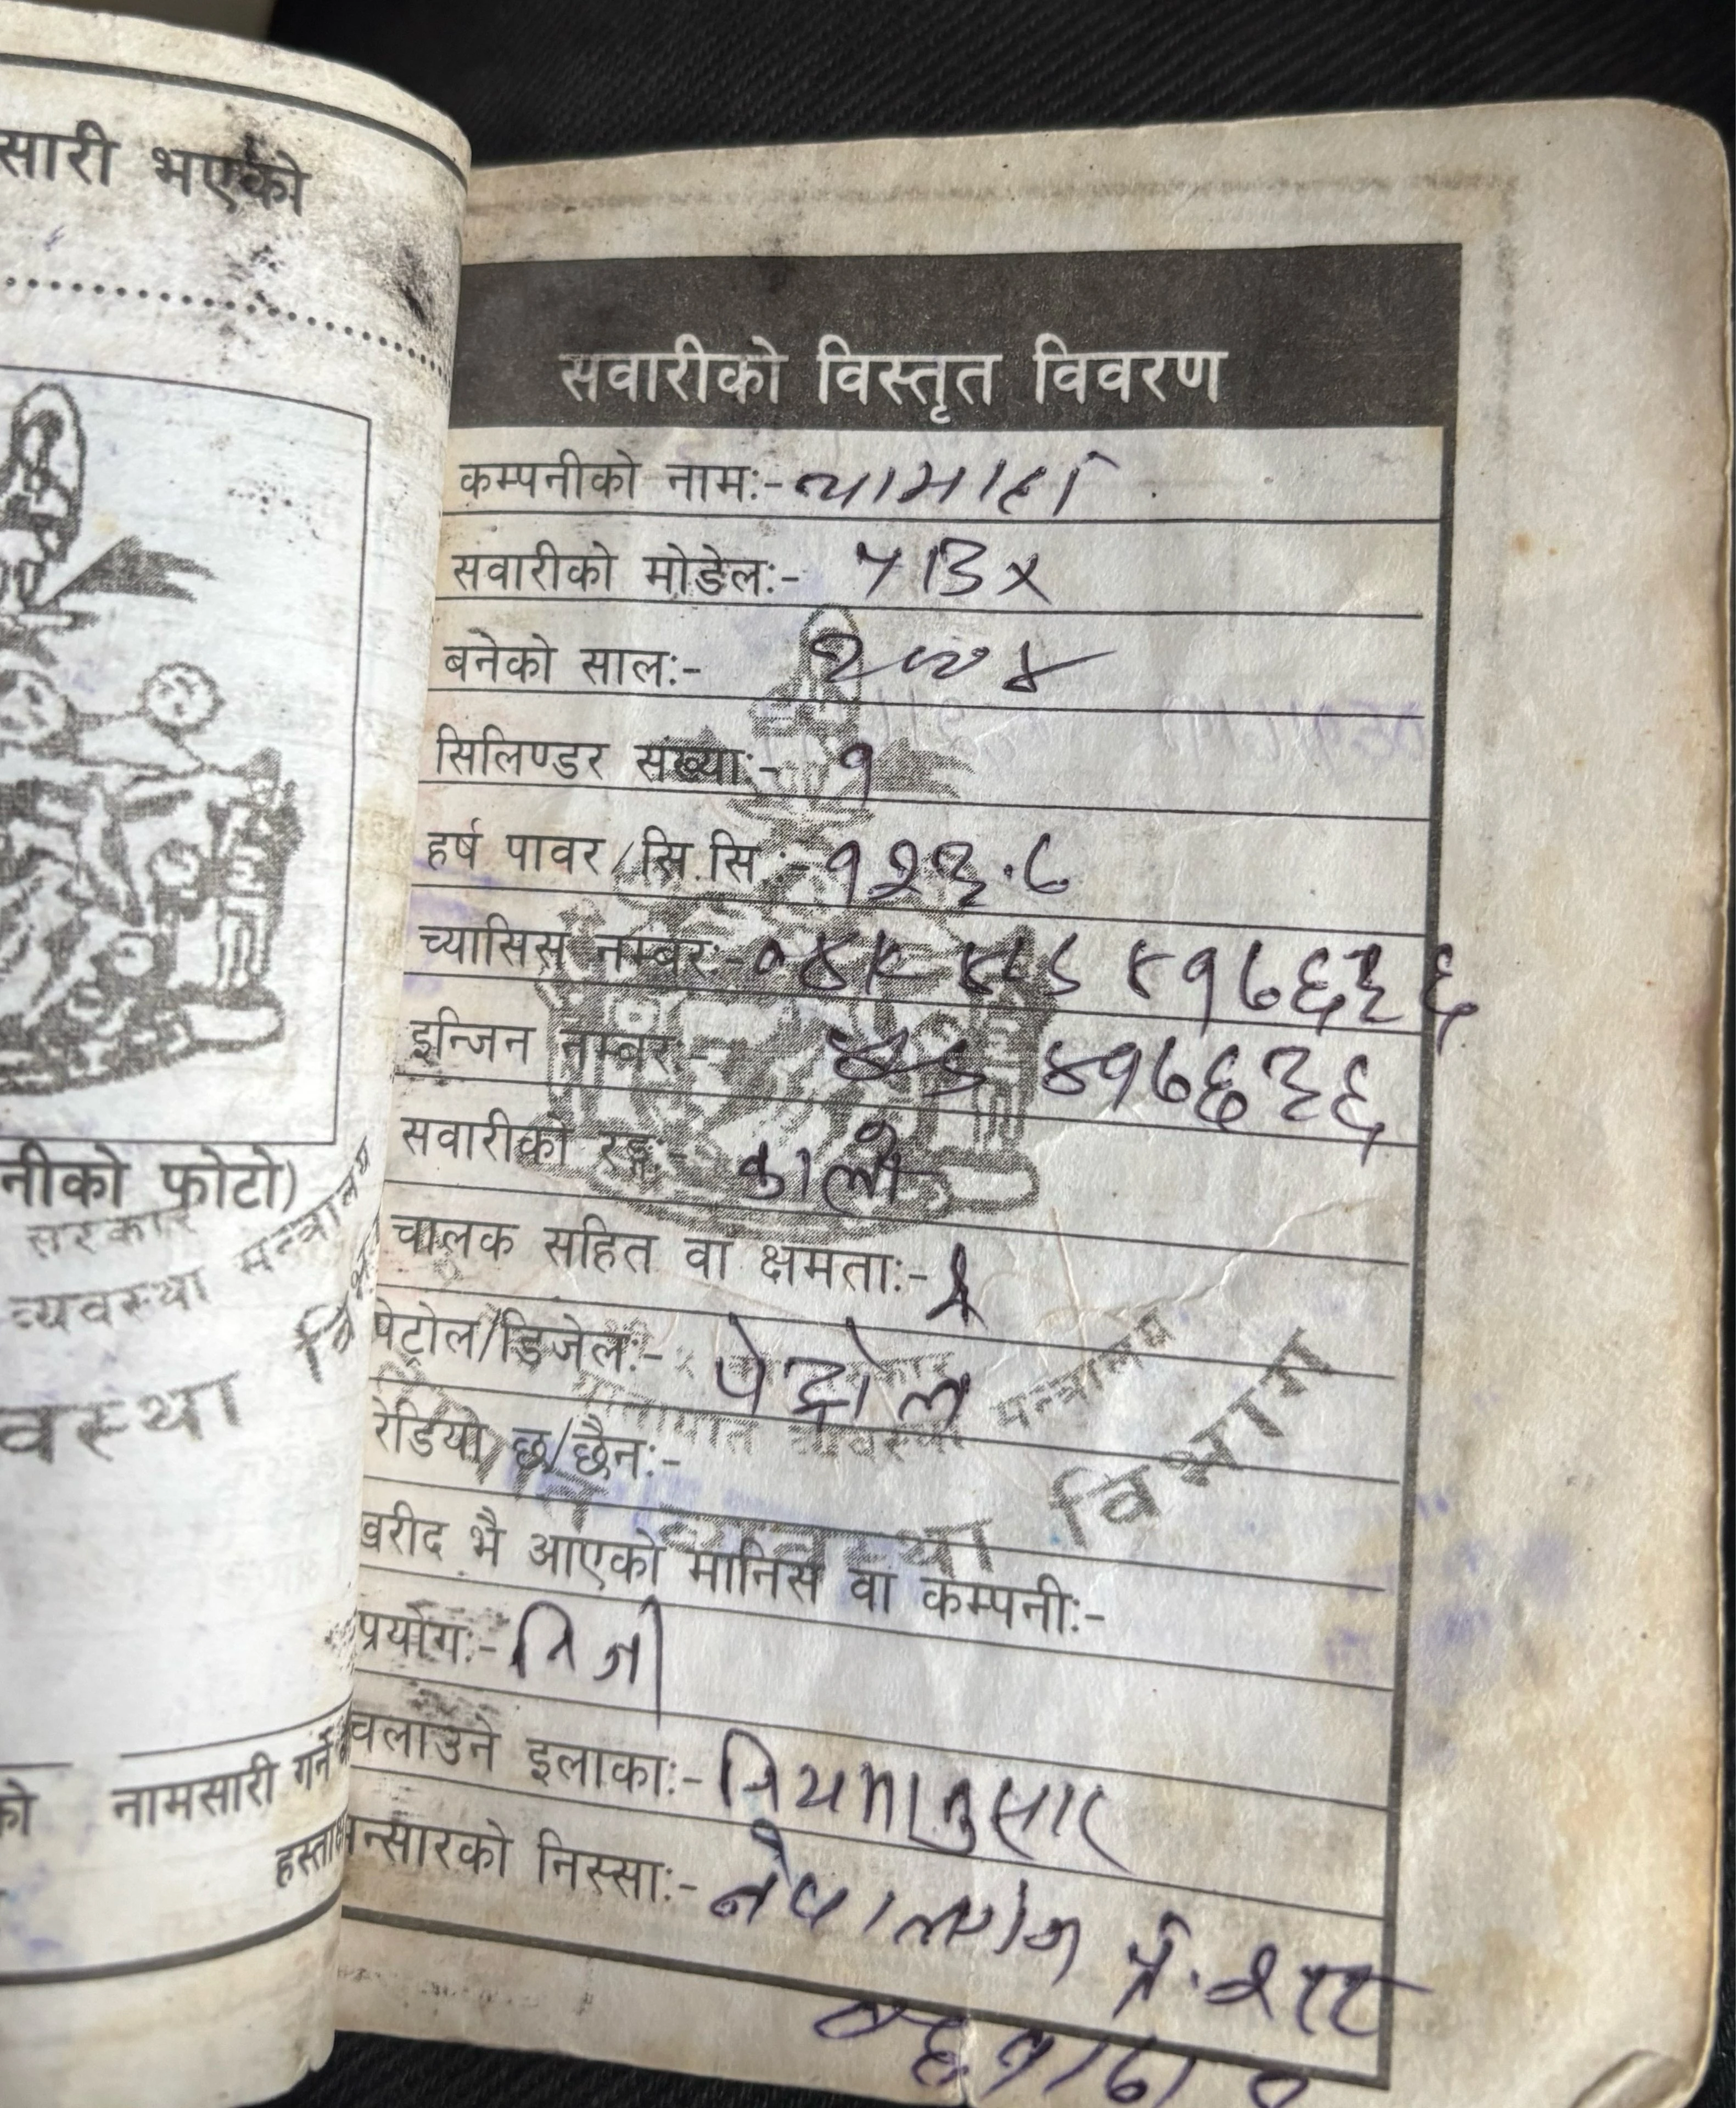 सारी भएको
नीको फोटो)
सरकार
व्यवस्था मन्त्रालय
वस्था
को नामसारी गर्ने
सवारीको विस्तृत विवरण
कम्पनीको नाम:- यामाहा
सवारीको मोडेल:- YBX
बनेको साल:- २००४
सिलिण्डर संख्या:- १
हर्ष पावर/सि.सि :- १२३.७
च्यासिस नम्बर:-
इन्जिन नम्बर:- ४१७६३६
सवारीको रङ्ग:- कालो
चालक सहित वा क्षमता:- २
पेट्रोल/डिजेल:- पेट्रोल
रेडियो छ/छैन:-
खरीद भै आएको मानिस वा कम्पनी:-
प्रयोग:- निजी
चलाउने इलाका:- नियमानुसार
न्सारको निस्सा:- नेपालगंज
मन्त्रालय
व्यवस्था विभाग